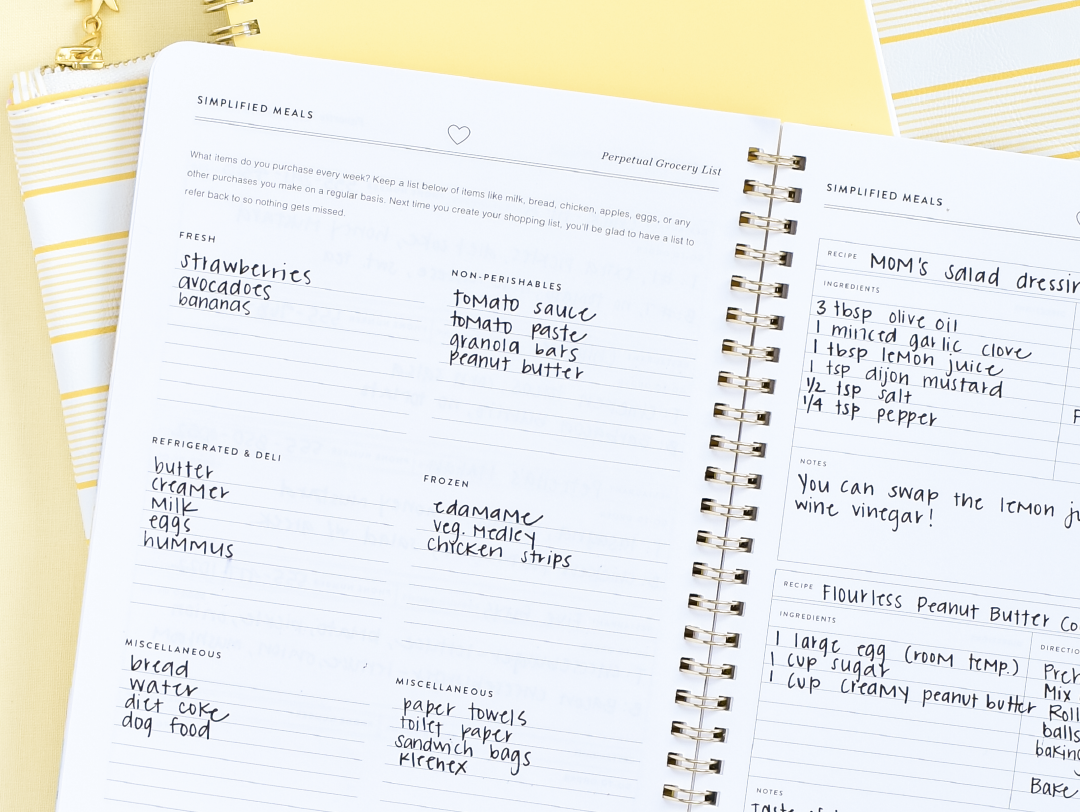 SIMPLIFIED MEALS
Perpetual Grocery List
What items do you purchase every week? Keep a list below of items like milk, bread, chicken, apples, eggs, or any
other purchases you make on a regular basis. Next time you create your shopping list, you'll be glad to have a list to
refer back to so nothing gets missed.
FRESH
strawberries
avocadoes
bananas
NON-PERISHABLES
tomato sauce
tomato paste
granola bars
peanut butter
REFRIGERATED & DELI
butter
creamer
milk
eggs
hummus
FROZEN
edamame
veg. medley
chicken strips
MISCELLANEOUS
bread
water
diet coke
dog food
MISCELLANEOUS
paper towels
toilet paper
sandwich bags
kleenex
SIMPLIFIED MEALS
RECIPE MOM'S salad dressin
INGREDIENTS
3 tbsp olive oil
1 minced garlic clove
1 tbsp lemon juice
1 tsp dijon mustard
1/2 tsp salt
1/4 tsp pepper
NOTES
You can swap the lemon ju
wine vinegar!
RECIPE Flourless Peanut Butter Co
INGREDIENTS
1 large egg (room temp.)
1 cup sugar
1 cup creamy peanut butter
DIRECTIO
Preh
Mix
Roll
balls
baking
Bake
NOTES